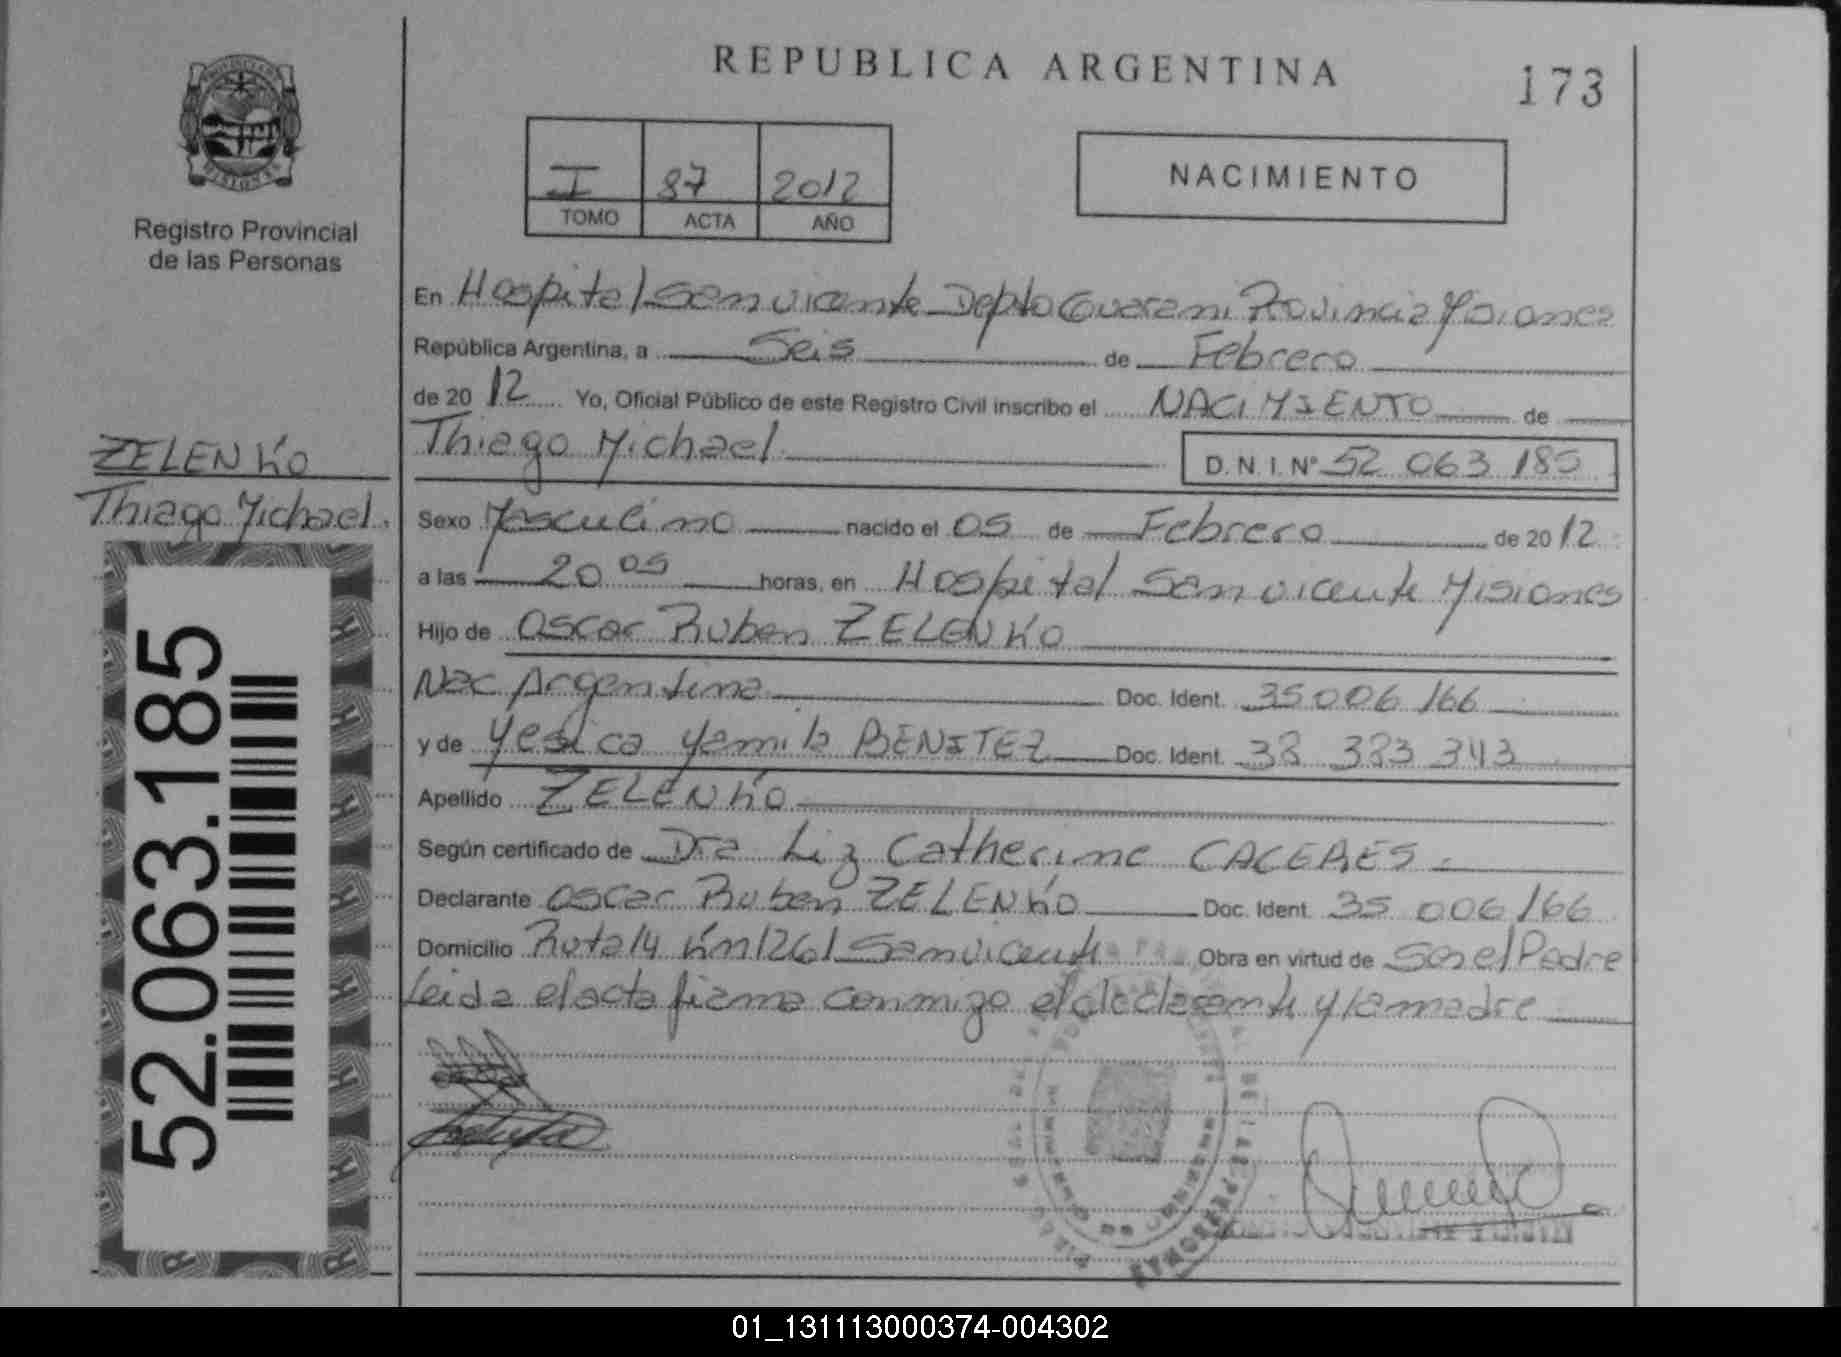 REPUBLICA ARGENTINA
173
PROVINCIA DE MISIONES
Registro Provincial
de las Personas
I 87 2012
TOMO ACTA AÑO
NACIMIENTO
En Hospital San vicente Depto Guarani Provincia Misiones
República Argentina, a Seis de Febrero
de 2012 Yo, Oficial Público de este Registro Civil inscribo el NACIMIENTO de
Thiago Michael D.N.I. Nº 52 063 185
ZELENKO
Thiago Michael.
Sexo Masculino nacido el 05 de Febrero de 2012
a las 20 05 horas, en Hospital San vicente Misiones
Hijo de Oscar Ruben ZELENKO
Nac Argentina Doc. Ident. 35 006 166
y de Yesica Yamila BENITEZ Doc. Ident. 38 383 343
Apellido ZELENKO
Según certificado de Dra Liz Catherine CACERES.
Declarante Oscar Ruben ZELENKO Doc. Ident. 35 006 166
Domicilio Ruta 14 Km 1261 San vicente Obra en virtud de Ser el Padre
Leida el acta firma conmigo el declarante y la madre
52.063.185
01_131113000374-004302